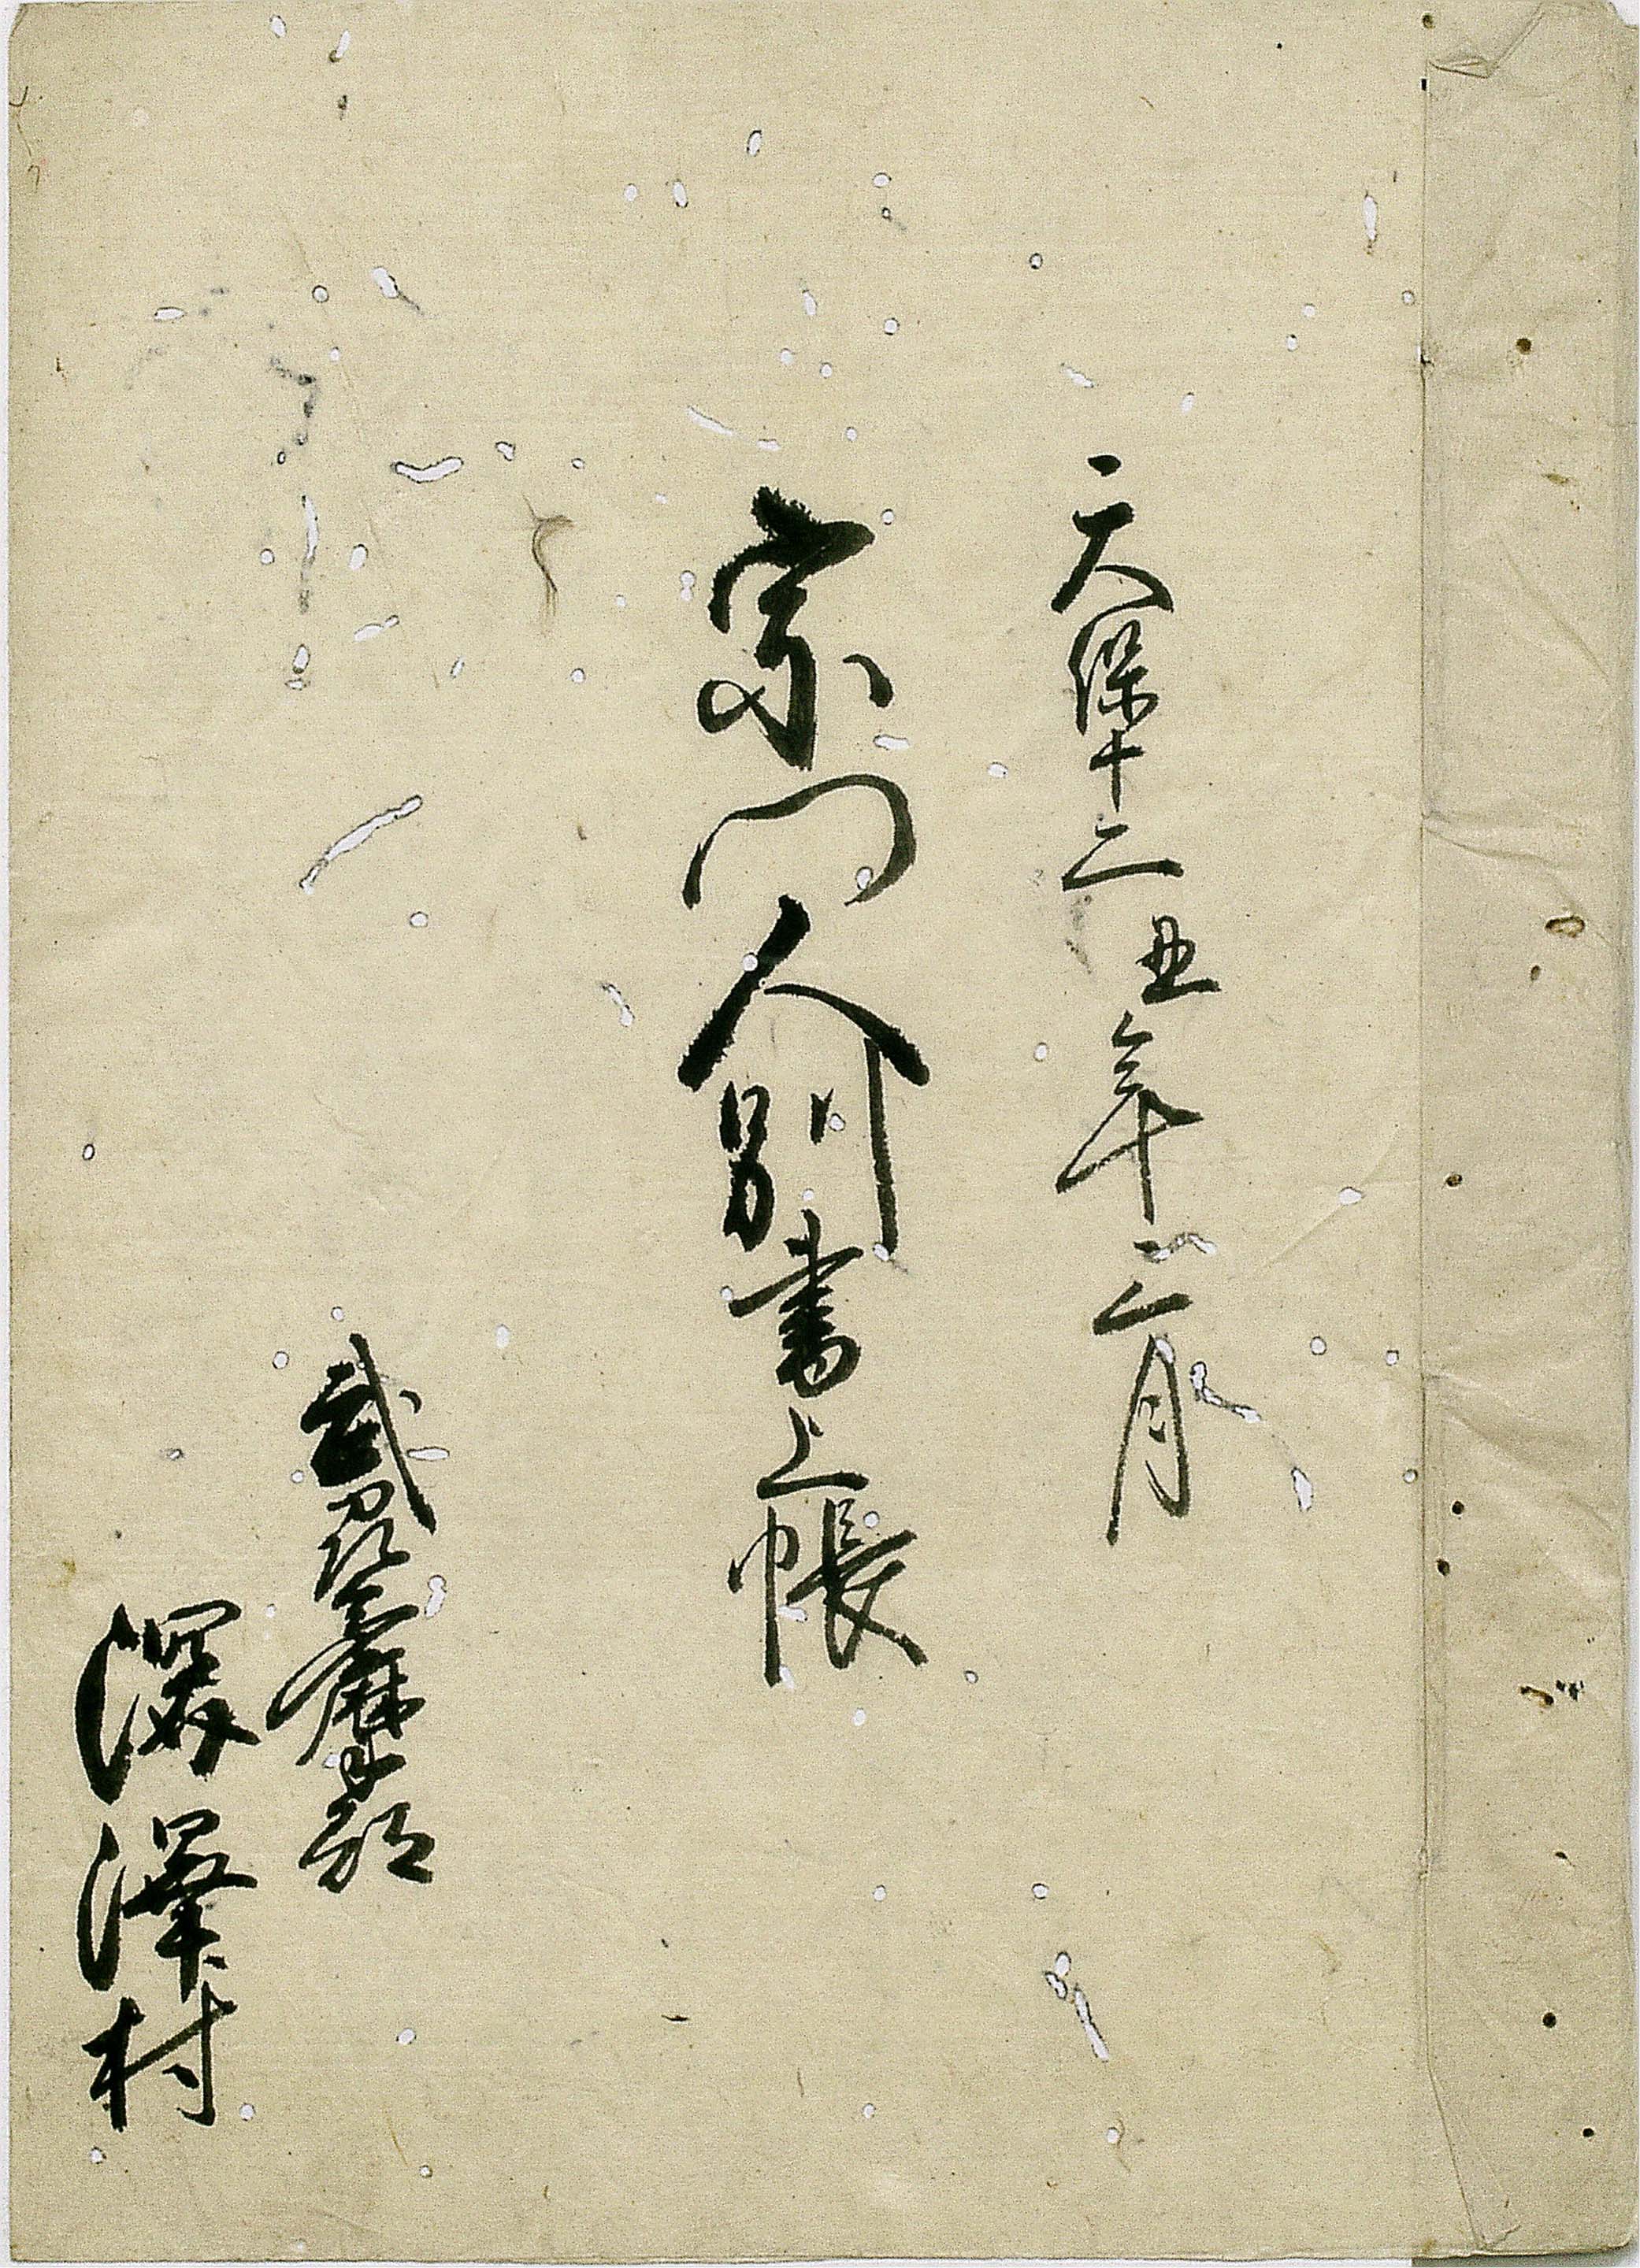 天保十二丑年三月
宗門人別書上帳
武州多摩郡
深澤村